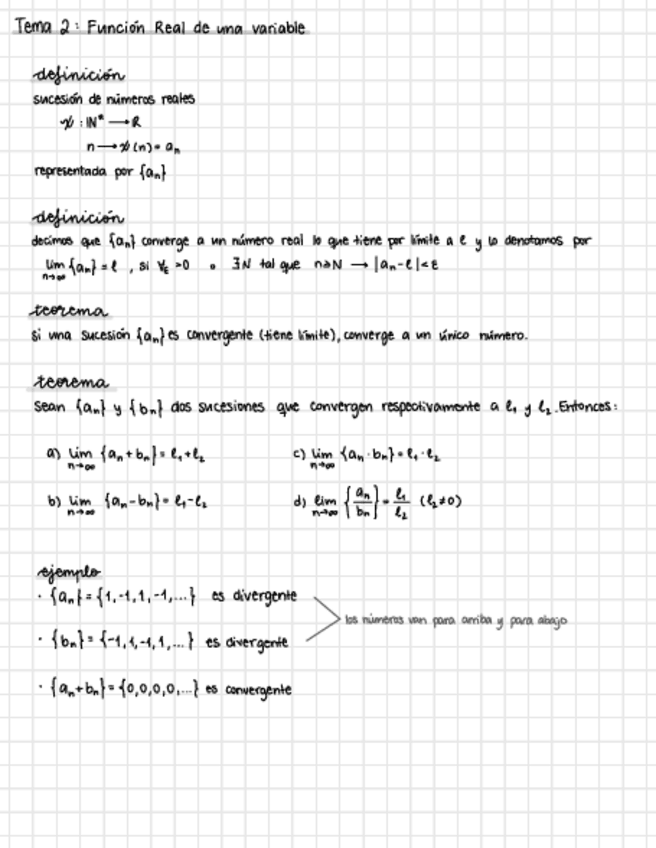 Tema 2: Función Real de una variable
definición
sucesión de números reales
x : ℕ* → ℝ
n → x(n) = aₙ
representada por {aₙ}
definición
decimos que {aₙ} converge a un número real lo que tiene por límite a ℓ y lo denotamos por
lim n→∞ {aₙ} = ℓ , si ∀ε >0 ∃N tal que n≥N → |aₙ-ℓ|<ε
teorema
Si una sucesión {aₙ} es convergente (tiene límite), converge a un único número.
teorema
Sean {aₙ} y {bₙ} dos sucesiones que convergen respectivamente a ℓ₁ y ℓ₂. Entonces:
a) lim n→∞ {aₙ + bₙ} = ℓ₁+ℓ₂
c) lim n→∞ {aₙ · bₙ} = ℓ₁·ℓ₂
b) lim n→∞ {aₙ - bₙ} = ℓ₁-ℓ₂
d) lim n→∞ {aₙ/bₙ} = ℓ₁/ℓ₂ (ℓ₂≠0)
ejemplo
· {aₙ} = {1,-1,1,-1,...} es divergente
los números van para arriba y para abajo
· {bₙ} = {-1,1,-1,1,...} es divergente
· {aₙ+bₙ} = {0,0,0,0,...} es convergente